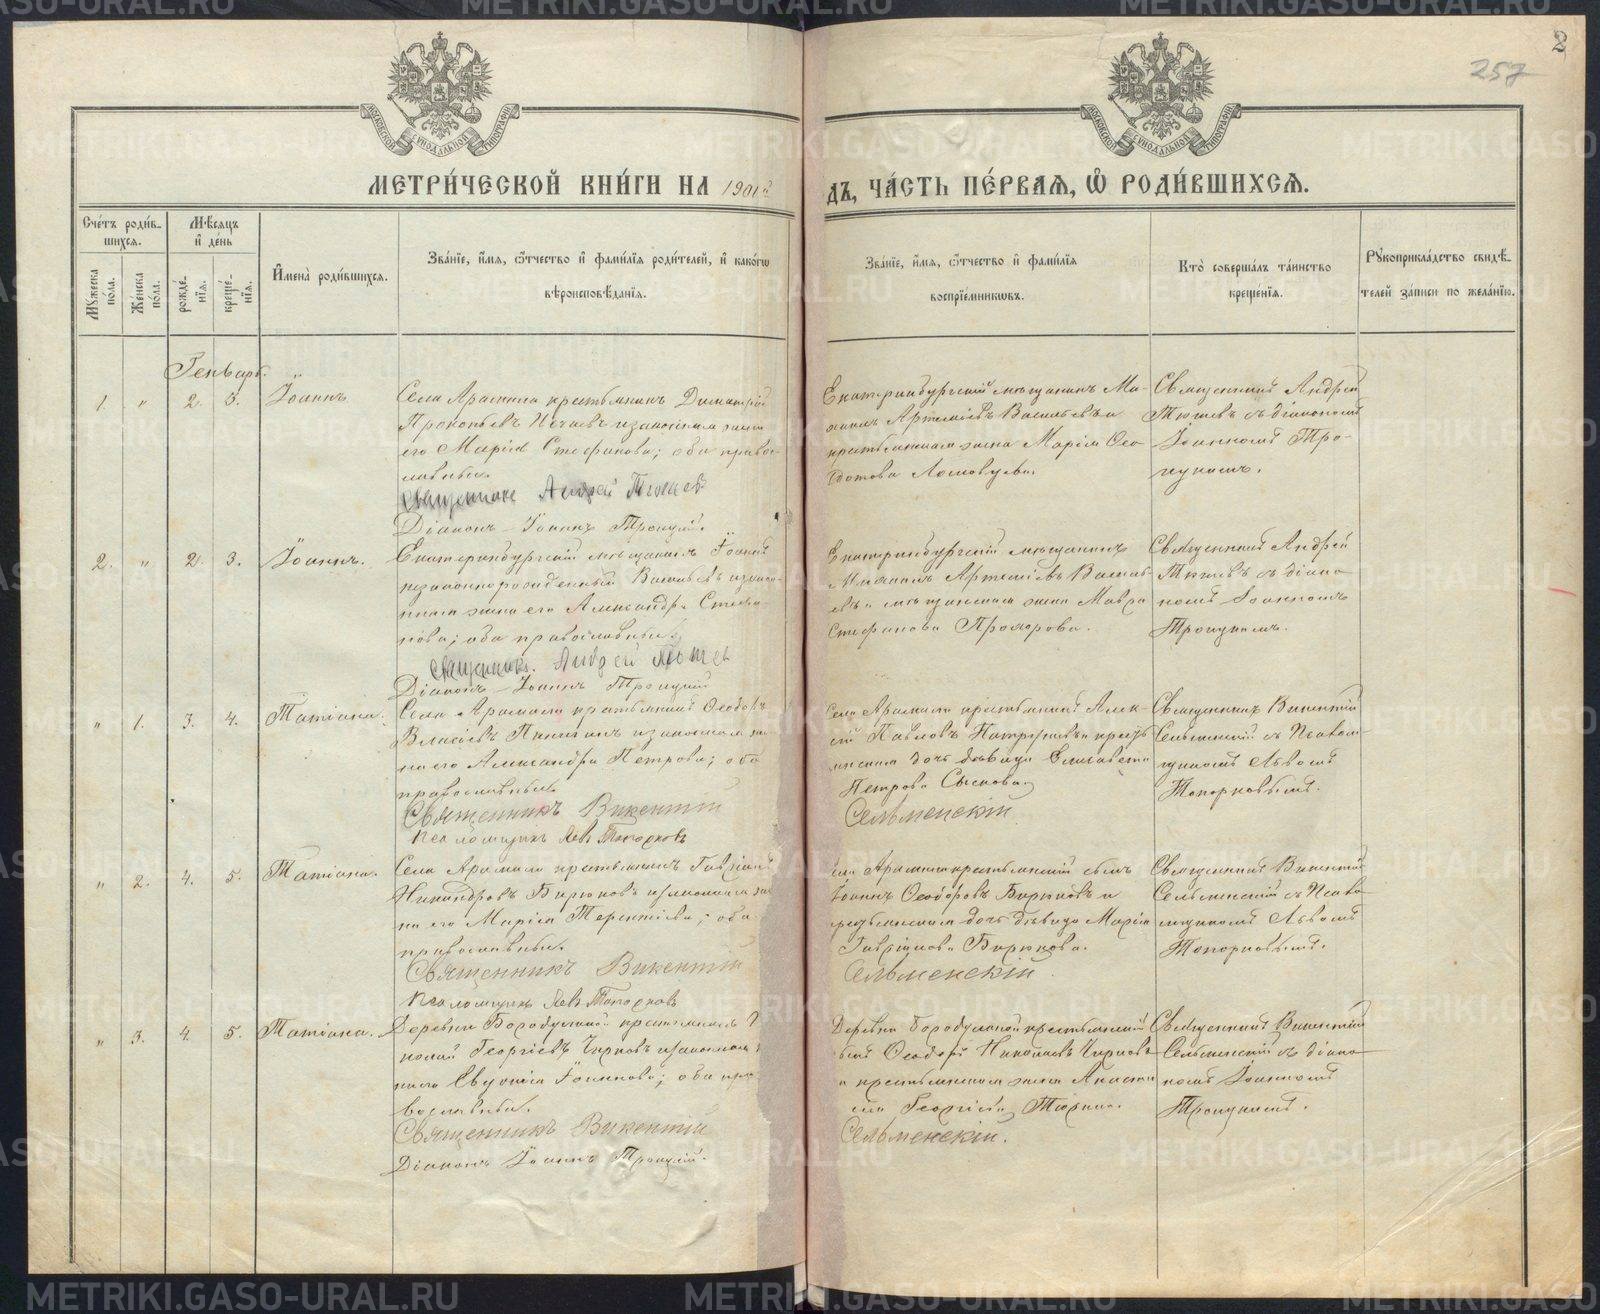 2
257
МОСКОВСКОЙ СУНОДАЛЬНОЙ ТИПОГРАФІИ
МОСКОВСКОЙ СУНОДАЛЬНОЙ ТИПОГРАФІИ
МЕТРИ́ЧЕСКОЙ КНИ́ГИ НА 1901й
ДЪ, ЧА́СТЬ ПЕ́РВАЯ, Ѽ РОДИ́ВШИХСЯ.
Сче́тъ роди́в-
шихся.
Мѣсяцъ
и҆ де́нь
Мꙋжеска
по́ла.
Же́нска
по́ла.
рожде́-
нїя.
креще́-
нїя.
И҆мена̀ роди́вшихся.
Зва́нїе, и҆́мя, ѻ҆́тчество и҆ фами́лїя роди́телей, и҆ како́гѡ
вѣроисповѣ́данїя.
Зва́нїе, и҆́мя, ѻ҆́тчество и҆ фами́лїя
воспрїе́мникѡвъ.
Кто̀ соверша́лъ та́инство
креще́нїя.
Рꙋкоприкла́дство свидѣ́-
телей за́писи по жела́нїю.
Генварь.
1. " 2. 3. Іоаннъ
Села Арамила крестьянинъ Димитрій
Прокопьевъ и законная жена
его Марія Стефанова; оба право-
славные.
Священникъ Андрей
Діаконъ Іоаннъ Троицкій.
Екатеринбургскій мѣщанинъ Ми-
хаилъ Артемьевъ Васильевъ и
крестьянская жена Марія Ѳео-
дотова
Священникъ Андрей
съ діакономъ
Іоанномъ Тро-
ицкимъ.
2. " 2. 3. Іоаннъ.
Екатеринбургскій мѣщанинъ Іоаннъ
незаконнорожденный Васильевъ и закон-
ная жена его Александра Стефа-
нова; оба православные.
Священникъ Андрей
Діаконъ Іоаннъ Троицкій
Екатеринбургскій мѣщанинъ
Михаилъ Артемьевъ Василь-
евъ и мѣщанская жена Мавра
Стефанова Прохорова.
Священникъ Андрей
съ діако-
номъ Іоанномъ
Троицкимъ.
" 1. 3. 4. Татіана.
Села Арамила крестьянинъ Ѳеодоръ
Власіевъ и законная же-
на его Александра Петрова; оба
православные.
Священникъ Викентій
Псаломщикъ Левъ Топорковъ
Села Арамила крестьянинъ Алек-
сій Павловъ и кресть-
янская дочь дѣвица Елисавета
Петрова
Сельменскій
Священникъ Викентій
Сельменскій съ Псалом-
щикомъ Львомъ
Топорковымъ.
" 2. 4. 5. Татіана.
Села Арамила крестьянинъ Гавріилъ
Никандровъ Бирюковъ и законная же-
на его Марія Терентіева; оба
православные.
Священникъ Викентій
Псаломщикъ Левъ Топорковъ
Арамила крестьянскій сынъ
Іоаннъ Ѳеодоровъ Бирюковъ и
крестьянская дочь дѣвица Марія
Гавріилова Бирюкова.
Сельменскій.
Священникъ Викентій
Сельменскій съ Псало-
мщикомъ Львомъ
Топорковымъ.
" 3. 4. 5. Татіана.
Деревни Бородулиной крестьянинъ Ни-
колай Георгіевъ Чирковъ и законная же-
на его Евдокія Іоаннова; оба пра-
вославные.
Священникъ Викентій
Діаконъ Іоаннъ Троицкій.
Деревни Бородулиной крестьянскій
сынъ Ѳеодоръ Николаевъ Чирковъ
и крестьянская жена Анаста-
сія Георгіева
Сельменскій.
Священникъ Викентій
Сельменскій съ діако-
номъ Іоанномъ
Троицкимъ.
METRIKI.GASO-URAL.RU